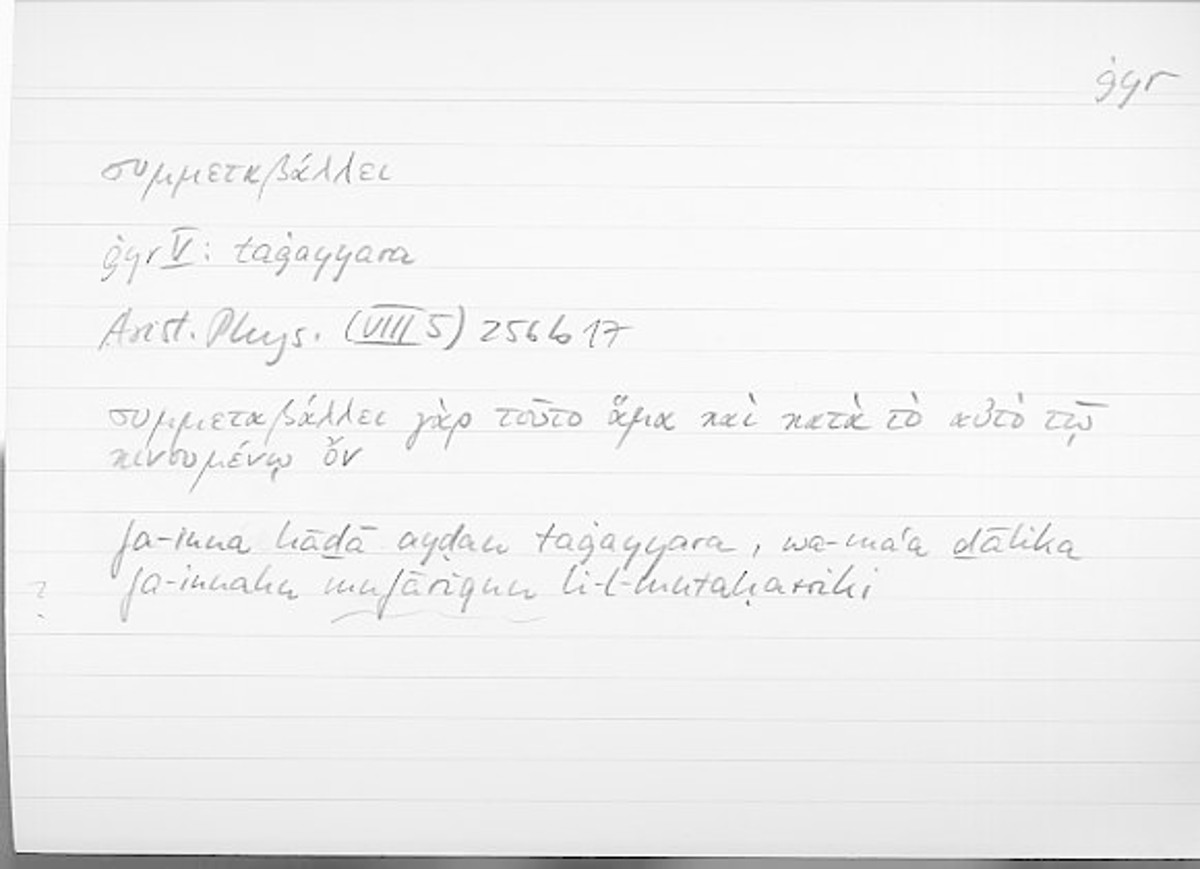 ġyr
συμμεταβάλλει
ġyr V: taġayyara
Arist. Phys. (VIII 5) 256 b 17
συμμεταβάλλει γὰρ τοῦτο ἅμα καὶ κατὰ τὸ αὐτὸ τῷ
κινουμένῳ ὄν
fa-inna hāḏā ayḍan taġayyara, wa-ma'a ḏālika
? fa-innahu mufāriqun li-l-mutaḥarriki